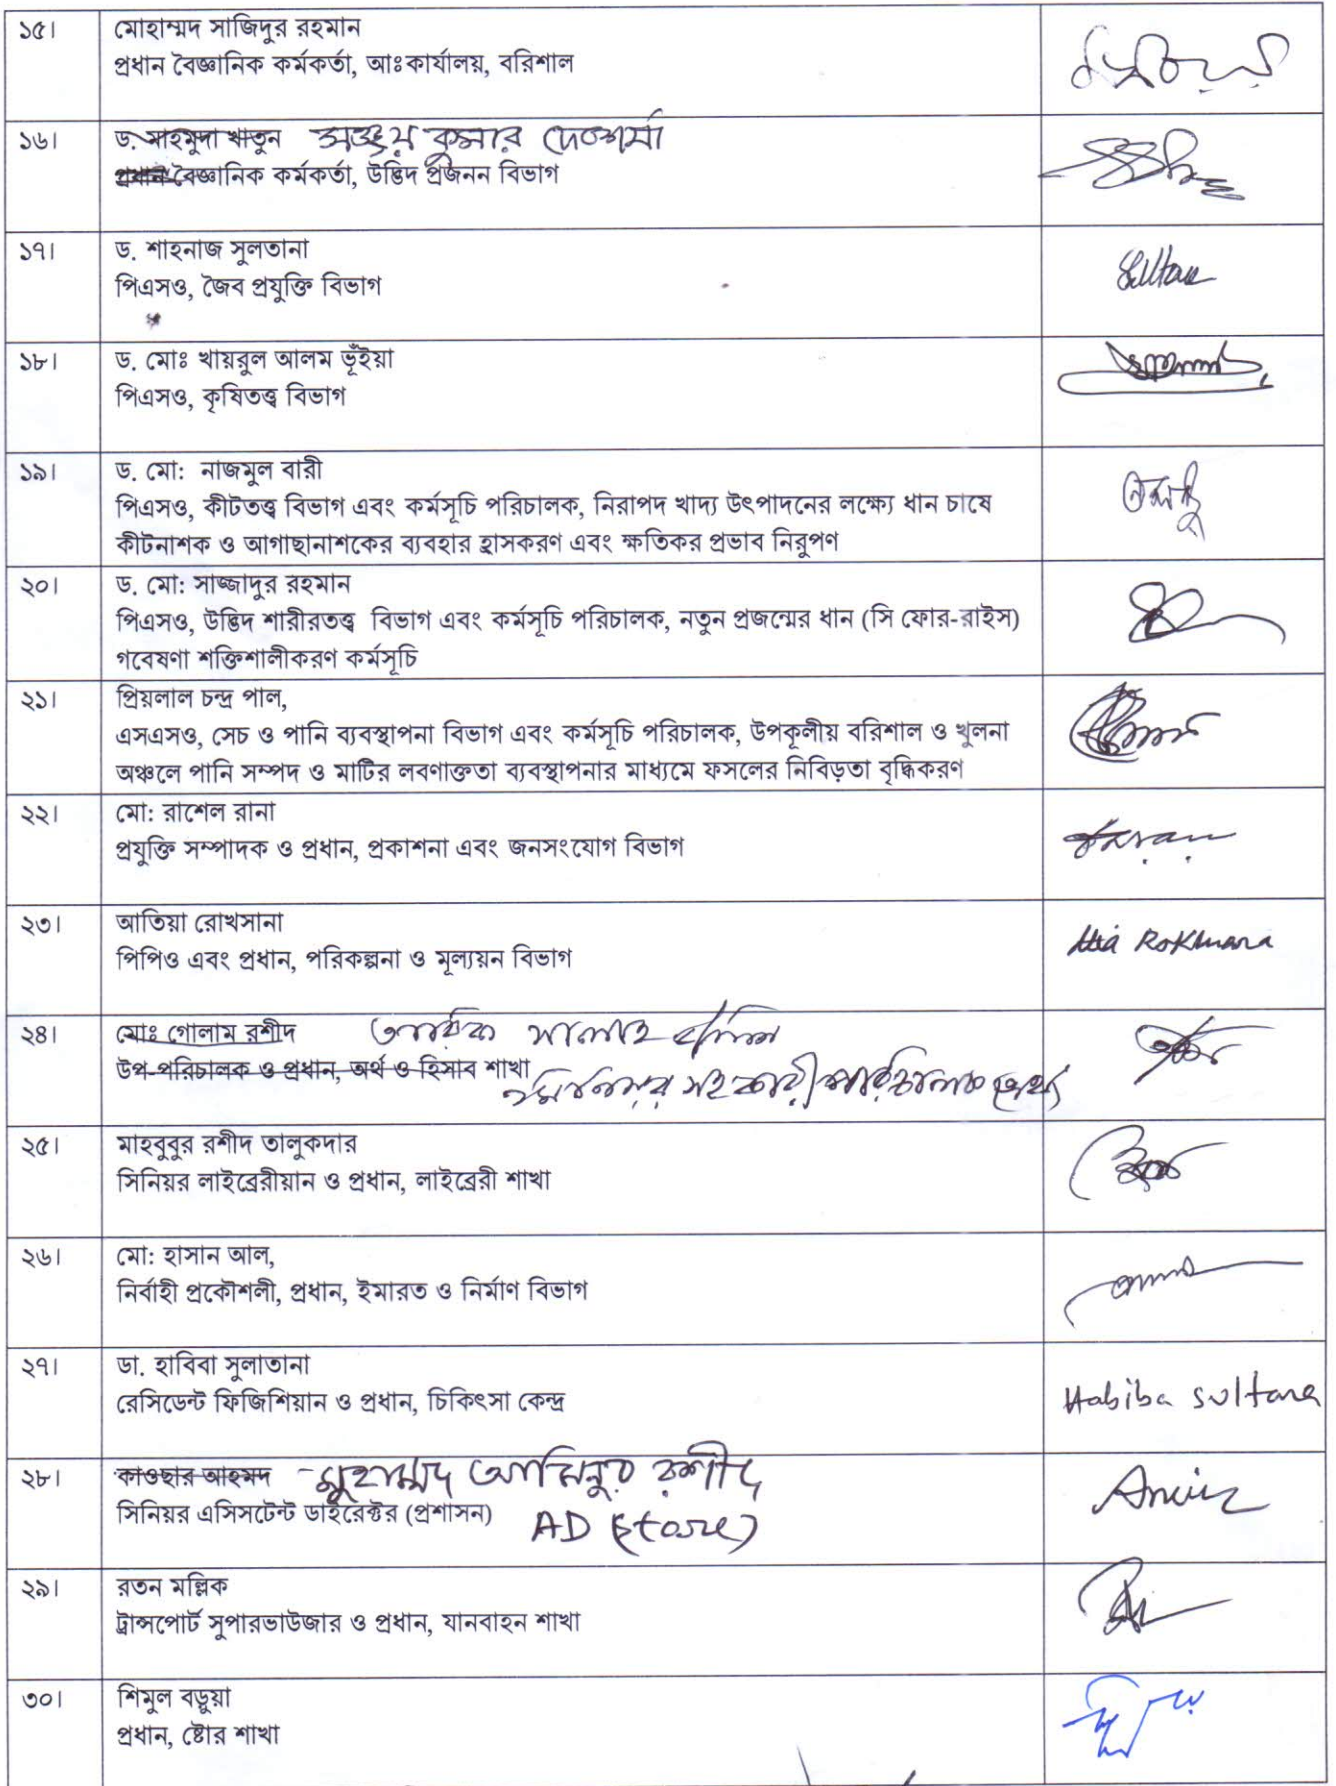 ১৫। মোহাম্মদ সাজিদুর রহমান
প্রধান বৈজ্ঞানিক কর্মকর্তা, আঃকার্যালয়, বরিশাল
১৬। ড. মাহমুদা খাতুন কুমার দেবশর্মা
প্রধান বৈজ্ঞানিক কর্মকর্তা, উদ্ভিদ প্রজনন বিভাগ
১৭। ড. শাহনাজ সুলতানা
পিএসও, জৈব প্রযুক্তি বিভাগ
১৮। ড. মোঃ খায়রুল আলম ভূঁইয়া
পিএসও, কৃষিতত্ত্ব বিভাগ
১৯। ড. মো: নাজমুল বারী
পিএসও, কীটতত্ত্ব বিভাগ এবং কর্মসূচি পরিচালক, নিরাপদ খাদ্য উৎপাদনের লক্ষ্যে ধান চাষে
কীটনাশক ও আগাছানাশকের ব্যবহার হ্রাসকরণ এবং ক্ষতিকর প্রভাব নিরুপণ
২০। ড. মো: সাজ্জাদুর রহমান
পিএসও, উদ্ভিদ শারীরতত্ত্ব বিভাগ এবং কর্মসূচি পরিচালক, নতুন প্রজন্মের ধান (সি ফোর-রাইস)
গবেষণা শক্তিশালীকরণ কর্মসূচি
২১। প্রিয়লাল চন্দ্র পাল,
এসএসও, সেচ ও পানি ব্যবস্থাপনা বিভাগ এবং কর্মসূচি পরিচালক, উপকূলীয় বরিশাল ও খুলনা
অঞ্চলে পানি সম্পদ ও মাটির লবণাক্ততা ব্যবস্থাপনার মাধ্যমে ফসলের নিবিড়তা বৃদ্ধিকরণ
২২। মো: রাশেল রানা
প্রযুক্তি সম্পাদক ও প্রধান, প্রকাশনা এবং জনসংযোগ বিভাগ
২৩। আতিয়া রোখসানা
পিপিও এবং প্রধান, পরিকল্পনা ও মূল্যয়ন বিভাগ
২৪। মোঃ গোলাম রশীদ
উপ-পরিচালক ও প্রধান, অর্থ ও হিসাব শাখা
সিনিয়র সহকারী পরিচালক (অর্থ)
২৫। মাহবুবুর রশীদ তালুকদার
সিনিয়র লাইব্রেরীয়ান ও প্রধান, লাইব্রেরী শাখা
২৬। মো: হাসান আল,
নির্বাহী প্রকৌশলী, প্রধান, ইমারত ও নির্মাণ বিভাগ
২৭। ডা. হাবিবা সুলাতানা
রেসিডেন্ট ফিজিশিয়ান ও প্রধান, চিকিৎসা কেন্দ্র
Habiba Sultana
২৮। কাওছার আহমদ মুহাম্মদ আমিনুর রশীদ
সিনিয়র এসিসটেন্ট ডাইরেক্টর (প্রশাসন) AD (Store)
২৯। রতন মল্লিক
ট্রান্সপোর্ট সুপারভাউজার ও প্রধান, যানবাহন শাখা
৩০। শিমুল বড়ুয়া
প্রধান, ষ্টোর শাখা